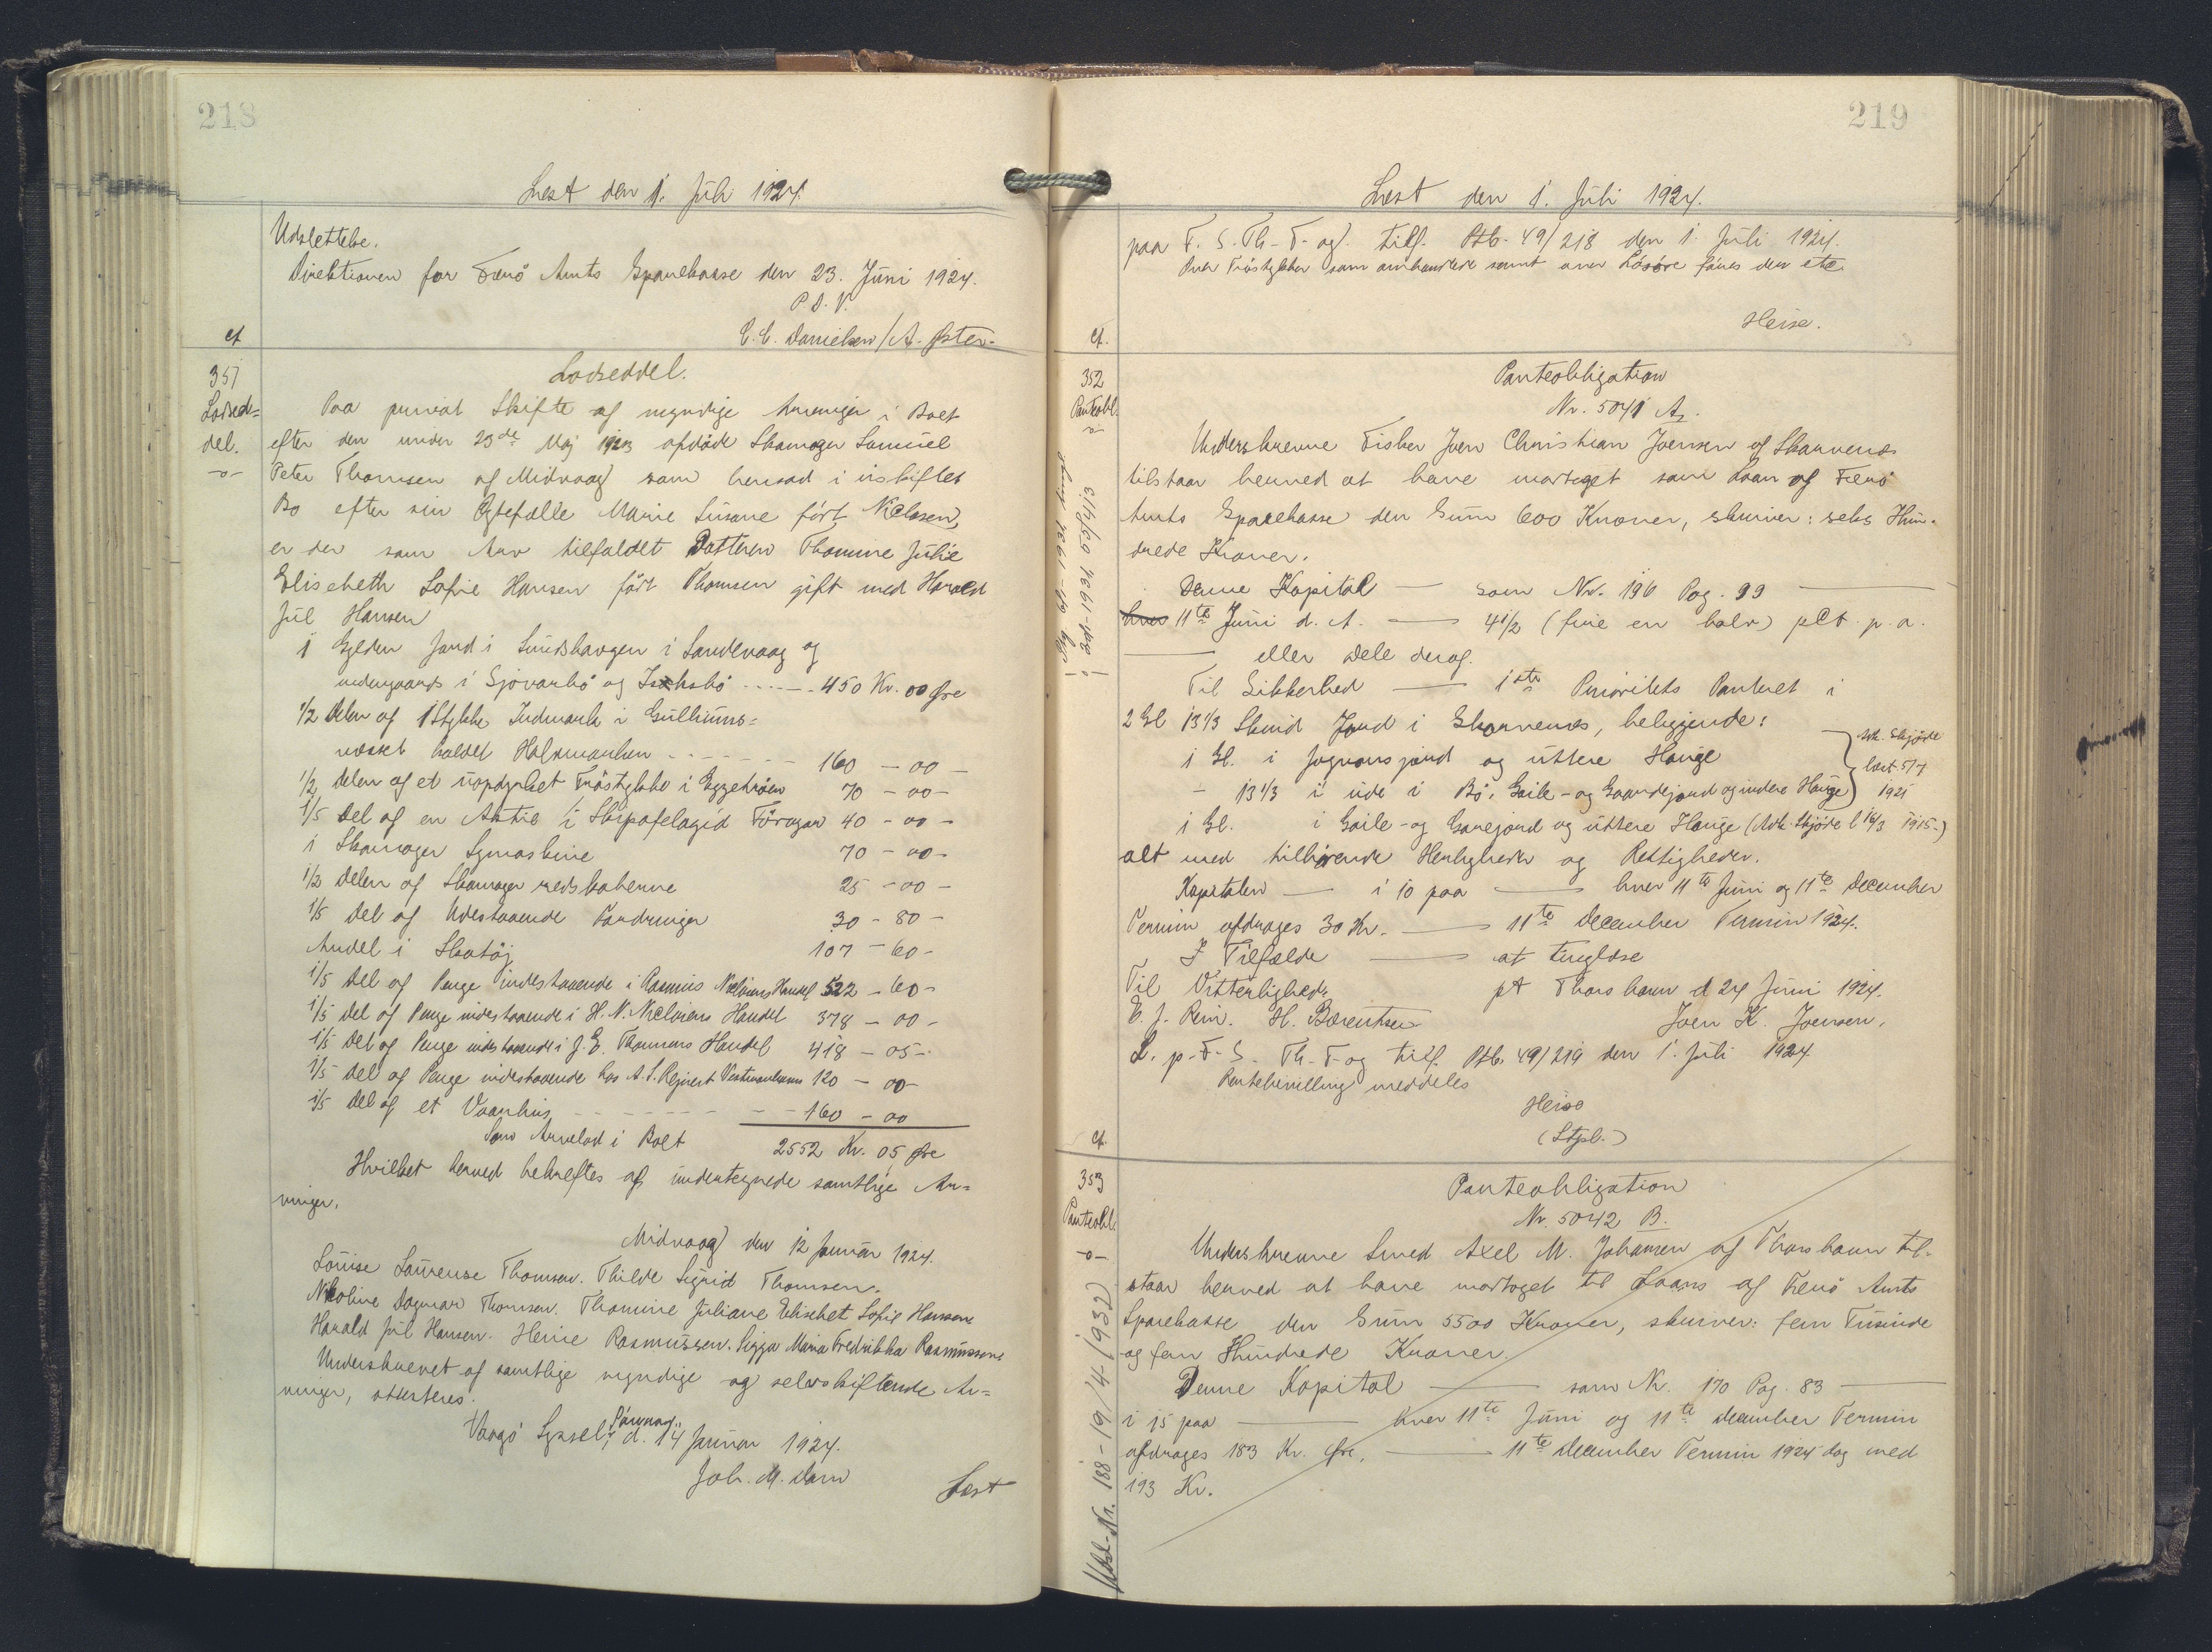 218
Læst den 1. Juli 1924.
Udslettelse.
Direktionen for Færø Amts Sparekasse den 23. Juni 1924.
P. D. V.
C. C. Danielsen / A. Øster.
cf
351
Lodsed=
del.
-o-
Lodseddel.
Paa privat Skifte af myndige Arvinger i Boet
efter den under 23de Maj 1923 afdøde Skomager Samuel
Peter Thomsen af Midvaag som hensad i uskiftet
Bo efter sin Ægtefælle Marie Susanne født Nielsen,
er der som Arv tilfaldet Datteren Thomine Julie
Elisebeth Sofie Hansen født Thomsen gift med Harald
Jul Hansen
1 Gylden Jord i Sandevaag og
nedengaards i og 450 Kr. 00 Øre
1/2 Delen af 1 Stykke Indmark i
næsset kaldet 160 - 00 -
1/2 Delen af et uopdyrket Trøstykke i 70 - 00 -
1/5 Del af en Aktie i Skipafelagid Føroyar 40 - 00 -
1 Skomager Symaskine 70 - 00 -
1/2 Delen af Skomager redskaberne 25 - 00 -
1/5 Del af Udestaaende Fordringer 30 - 80 -
Andel i Skotøj 107 - 60 -
1/5 Del af Penge indestaaende i Rasmus Nielsens Handel 522 - 60 -
1/5 Del af Penge indestaaende i H. N. Nielsens Handel 378 - 00 -
1/5 Del af Penge indestaaende i J. E. Thomsens Handel 418 - 05 -
1/5 Del af Penge indestaaende hos A. S. Rejnert Vestmanhavn 120 - 00 -
1/5 Del af et Vaanhus 160 - 00
Som Arvelod i Boet 2552 Kr. 05 Øre
Hvilket herved bekræftes af undertegnede samtlige Ar=
vinger.
Midvaag den 12 Januar 1924.
Louise Laurense Thomsen. Thilde Sigrid Thomsen.
Nikoline Dagmar Thomsen. Thomine Juliane Elisebet Sofie Hansen
Harald Jul Hansen. Heine Rasmussen. Sigga Maria Fredrikka Rasmussen
Underskrevet af samtlige myndige og selvskiftende Ar=
vinger, attesteres.
Vaagø Syssel, Sörvaag d. 14 Januar 1924.
Joh. M. Dam
Læst
219
Læst den 1. Juli 1924.
paa F. S. Th-F. og tilf. Ptb. 49/218 den 1. Juli 1924.
Over Trøstykker som ombandlede samt over Løsøre føres der etc.
Heise.
cf.
352
Panteobl.
-o-
Panteobligation
Nr. 5041 A.
Underskrevne Fisker Joen Christian Joensen af Skaarvenæs
tilstaar herved at have modtaget som Laan af Færø
Amts Sparekasse den Sum 600 Kroner, skriver: seks Hun-
drede Kroner.
Denne Kapital — som Nr. 196 Pag. 99 —
11te Juni d. A. — 4 1/2 (fire en halv) pCt. p. a.
— eller Dele deraf.
Til Sikkerhed — 1ste Prioritets Panteret i
2 Gl 13 1/3 Skind Jord i Skarvenæs, beliggende:
1 Gl. i Jognarsjord og uttere Hauge
- 13 1/3 i ude i Bø, Geile- og Gaardejord og indere Hauge } Adk. Skjøde læst 5/7 1921
1 Gl. i Geile- og Garejord og uttere Hauge (Adk. Skjøde l 16/3 1915.)
alt med tilhørende Herligheder og Rettigheder.
Kapitalen — i 10 paa — hver 11te Juni og 11te December
Termin afdrages 30 Kr. — 11te December Termin 1924.
I Tilfælde — at tinglæse
Til Vitterlighed: pt Thorshavn d 24 Juni 1924.
E. J. Rein. H. Bærentsen Joen K. Joensen.
L. p. F. S. Th-F- og tilf. Ptb. 49/219 den 1. Juli 1924
Pantebevilling meddeles
Heise
(Stpl.)
cf.
353
Panteobl.
-o-
Panteobligation
Nr. 5042 B.
Underskrevne Smed Axel M. Johansen af Thorshavn til-
staar herved at have modtaget til Laans af Færø Amts
Sparekasse den Sum 5500 Kroner, skriver: fem Tusinde
og fem Hundrede Kroner.
Denne Kapital — som Nr. 170 Pag. 83 —
i 15 paa — hver 11te Juni og 11te December Termin
afdrages 183 Kr. Øre, — 11te December Termin 1924 dog med
193 Kr.
Udsl. Nr. 188-19/4-1932